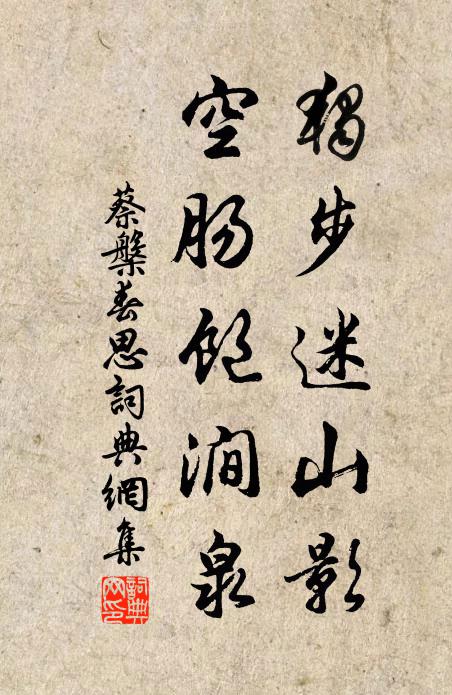 獨步迷山影
空腸飽澗泉
蔡槃春思詞典網集
詞典網印